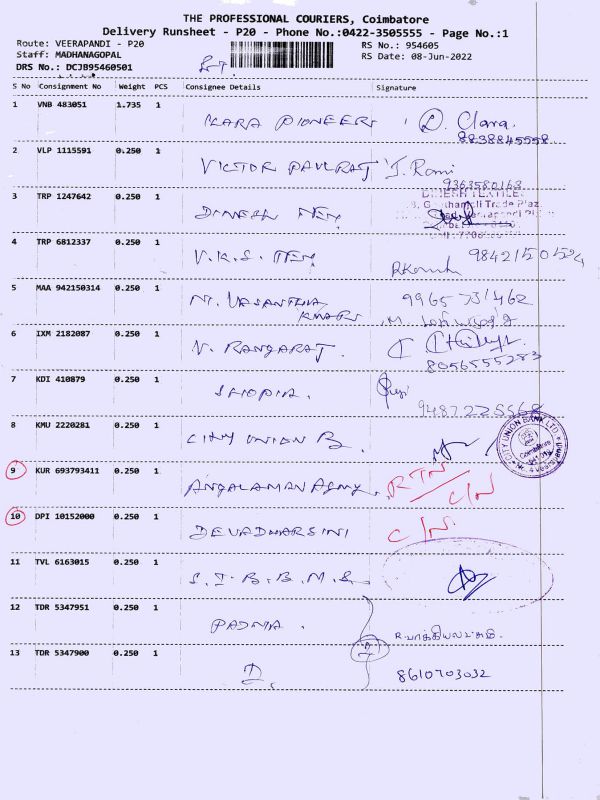 THE PROFESSIONAL COURIERS, Coimbatore
Delivery Runsheet - P20 - Phone No.:0422-3505555 - Page No.:1
Route: VEERAPANDI - P20
RS No.: 954605
Staff: MADHANAGOPAL
RS Date: 08-Jun-2022
DRS No.: DCJB95460501
S No Consignment No Weight PCS Consignee Details Signature
1 VNB 483051 1.735 1 KLARA PIONEERS D. Clara
8838845558
2 VLP 1115591 0.250 1 VICTOR PAULRAJ J. Rani
9363580163
3 TRP 1247642 0.250 1 DINESH TEX DINESH TEXTILES
4 TRP 6812337 0.250 1 V.K.S. TEX 9842150524
5 MAA 942150314 0.250 1 M. VASANTHA KUMAR 9965731462
6 IXM 2182087 0.250 1 N. RANGARAJ.
8056555283
7 KDI 410879 0.250 1 SHOPIA.
9487225568
8 KMU 2220281 0.250 1 CITY UNION B CITY UNION BANK LTD. Coimbatore
9 KUR 693793411 0.250 1 ANGALAMAN AGNY. RTN C/N
10 DPI 10152000 0.250 1 DEVADHARSINI C/N.
11 TVL 6163015 0.250 1 S.I.B.B.M.S.
12 TDR 5347951 0.250 1 PADMA.
13 TDR 5347900 0.250 1 8610703032